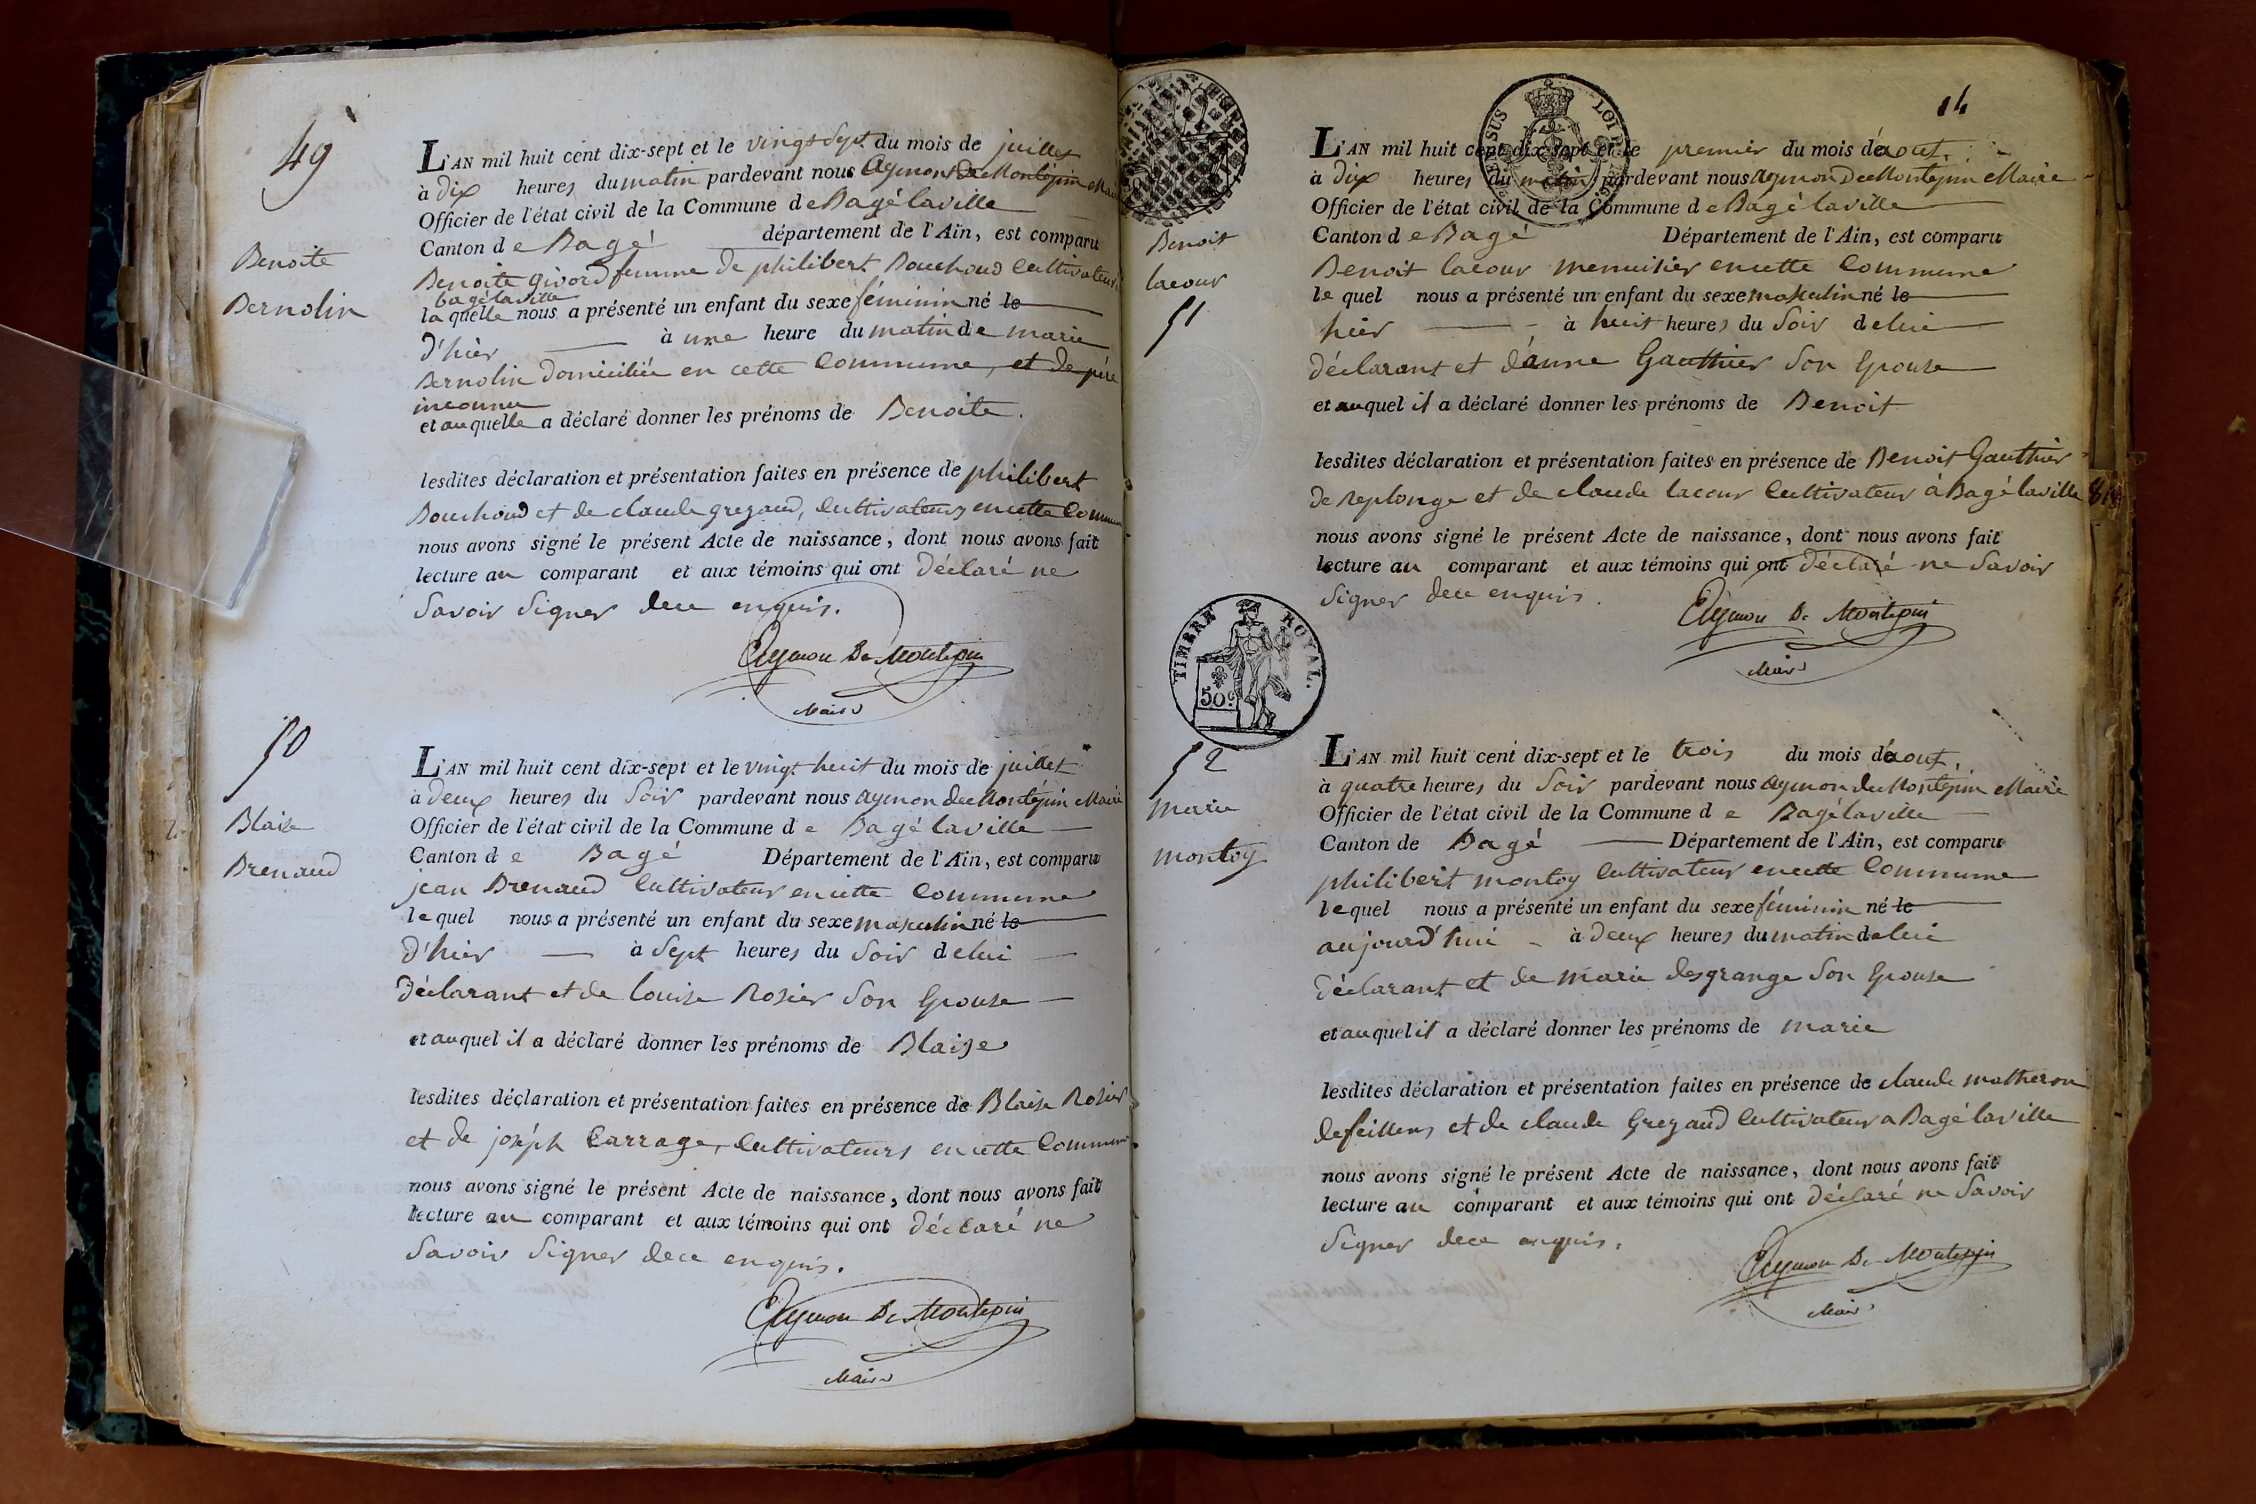 49
Benoite
Bernolin
L'AN mil huit cent dix-sept et le vingt Sept du mois de juillet
à dix heures du matin pardevant nous Aymon De Montépin Maire
Officier de l'état civil de la Commune de Bagé laville
Canton de Bagé département de l'Ain, est comparu
Benoite givord femme de philibert Bouchoud Cultivateur
bagé laville
laquelle nous a présenté un enfant du sexe féminin né le
d'hier à une heure du matin de marie
Bernolin domiciliée en cette Commune, et de père
inconnu
et au quelle a déclaré donner les prénoms de Benoite.
lesdites déclaration et présentation faites en présence de philibert
Bouchoud et de claude gregaud, Cultivateurs en cette Commune
nous avons signé le présent Acte de naissance, dont nous avons fait
lecture au comparant et aux témoins qui ont déclaré ne
Savoir Signer de ce enquis.
Aymon De Montepin
Maire
50
Blaise
Brenaud
L'AN mil huit cent dix-sept et le vingt huit du mois de juillet
à deux heures du Soir pardevant nous aymon de Montépin Maire
Officier de l'état civil de la Commune de Bagé laville
Canton de Bagé Département de l'Ain, est comparu
jean Brenaud Cultivateur en cette Commune
lequel nous a présenté un enfant du sexe masculin né le
d'hier à Sept heures du Soir de lui
déclarant et de louise Rosier Son Epouse
et auquel il a déclaré donner les prénoms de Blaise
lesdites déclaration et présentation faites en présence de Blaise Rosier
et de joséph Carrage, Cultivateurs en cette Commune
nous avons signé le présent Acte de naissance, dont nous avons fait
lecture au comparant et aux témoins qui ont déclaré ne
Savoir Signer de ce enquis.
Aymon De Montepin
Maire
14
LOI
Benoit
lacour
51
L'AN mil huit cent dix-sept et le premier du mois d'aout
à dix heures du matin pardevant nous aymon De Montépin Maire
Officier de l'état civil de la Commune de Bagé laville
Canton de Bagé Département de l'Ain, est comparu
Benoit lacour menuisier en cette Commune
lequel nous a présenté un enfant du sexe masculin né le
hier à huit heures du Soir de lui
déclarant et d'anne Gauthier Son Epouse
et auquel il a déclaré donner les prénoms de Benoit
lesdites déclaration et présentation faites en présence de Benoit Gauthier
de replonge et de claude lacour Cultivateur à Bagé laville
nous avons signé le présent Acte de naissance, dont nous avons fait
lecture au comparant et aux témoins qui ont déclaré ne Savoir
Signer de ce enquis.
Aymon De Montepin
Maire
TIMBRE ROYAL.
50c
52
marie
montoy
L'AN mil huit cent dix-sept et le trois du mois d'aout
à quatre heures du Soir pardevant nous aymon de Montépin Maire
Officier de l'état civil de la Commune de Bagé laville
Canton de Bagé Département de l'Ain, est comparu
philibert montoy Cultivateur en cette Commune
lequel nous a présenté un enfant du sexe féminin né le
aujourd'hui à deux heures du matin de lui
déclarant et de marie desgrange Son Epouse
et auquel il a déclaré donner les prénoms de marie
lesdites déclaration et présentation faites en présence de claude matheron
de feillens et de claude Gregaud Cultivateur a Bagé laville
nous avons signé le présent Acte de naissance, dont nous avons fait
lecture au comparant et aux témoins qui ont déclaré ne Savoir
Signer de ce enquis.
Aymon De Montepin
Maire